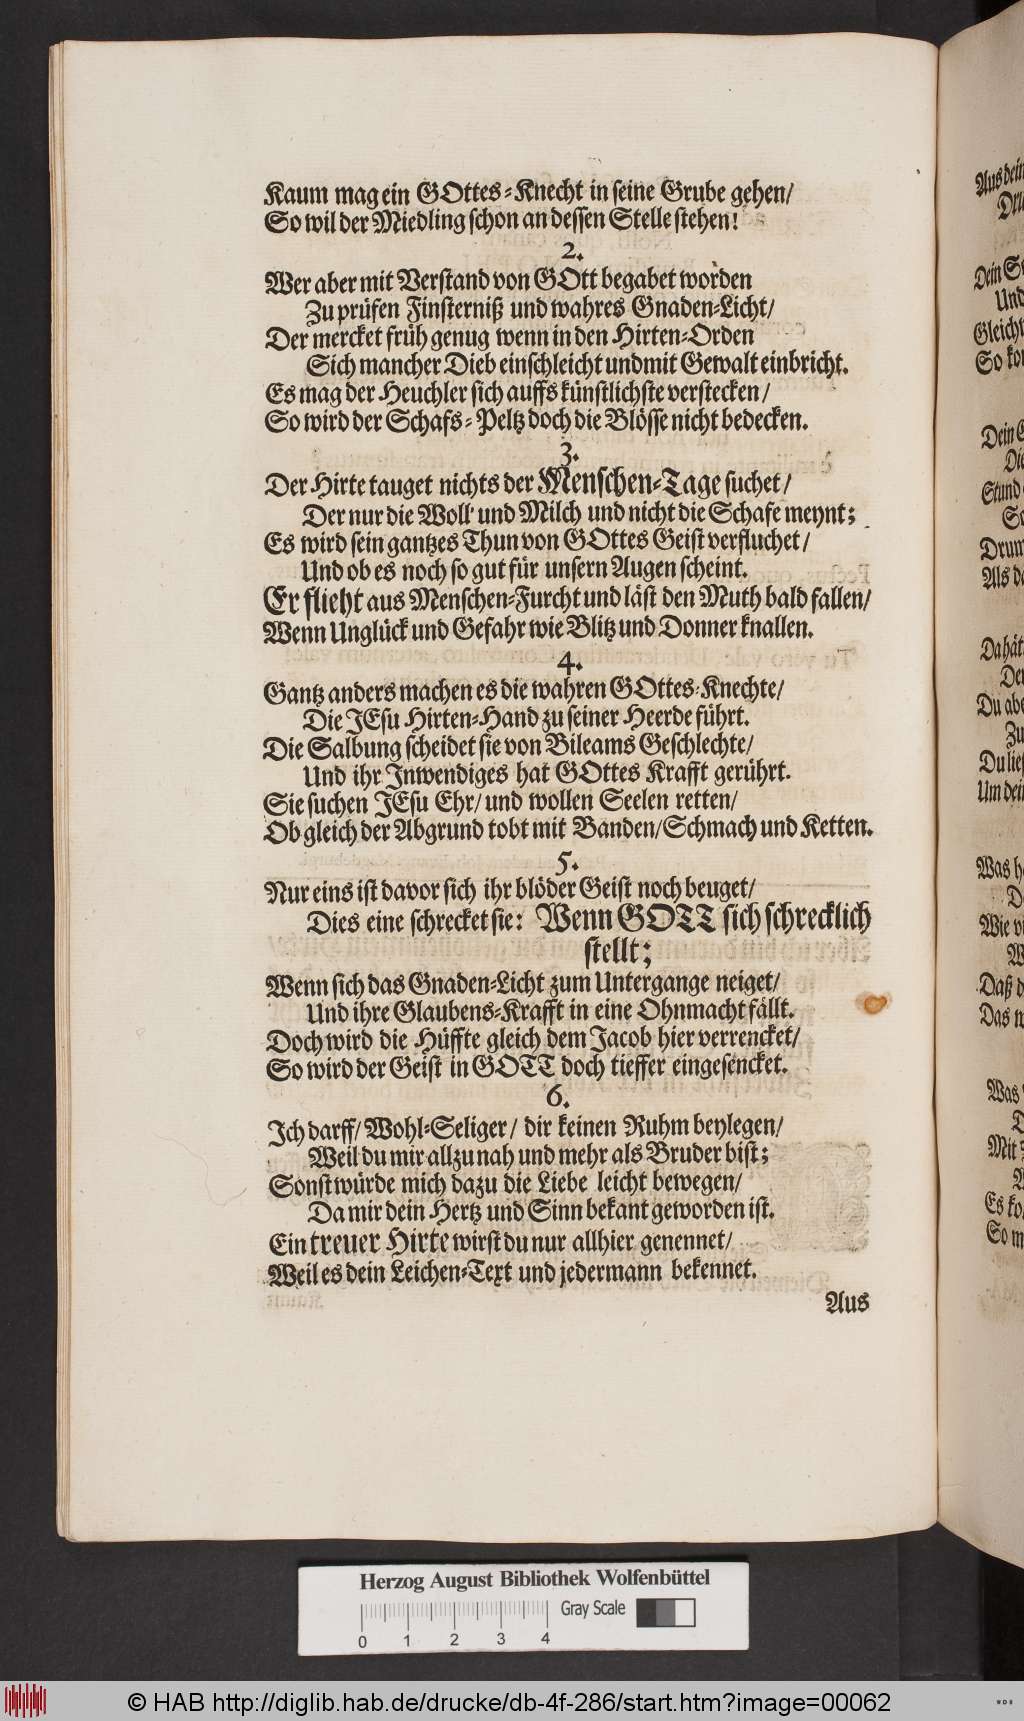 Kaum mag ein GOttes-Knecht in seine Grube gehen/
So wil der Miedling schon an dessen Stelle stehen!
2.
Wer aber mit Verstand von GOtt begabet worden
Zu prüfen Finsterniß und wahres Gnaden-Licht/
Der mercket früh genug wenn in den Hirten-Orden
Sich mancher Dieb einschleicht undmit Gewalt einbricht.
Es mag der Heuchler sich auffs künstlichste verstecken/
So wird der Schafs-Peltz doch die Blösse nicht bedecken.
3.
Der Hirte tauget nichts der Menschen-Tage suchet/
Der nur die Woll' und Milch und nicht die Schafe meynt;
Es wird sein gantzes Thun von GOttes Geist verfluchet/
Und ob es noch so gut für unsern Augen scheint.
Er flieht aus Menschen-Furcht und läst den Muth bald fallen/
Wenn Unglück und Gefahr wie Blitz und Donner knallen.
4.
Gantz anders machen es die wahren GOttes-Knechte/
Die JEsu Hirten-Hand zu seiner Heerde führt.
Die Salbung scheidet sie von Bileams Geschlechte/
Und ihr Inwendiges hat GOttes Krafft gerührt.
Sie suchen JEsu Ehr/ und wollen Seelen retten/
Ob gleich der Abgrund tobt mit Banden/Schmach und Ketten.
5.
Nur eins ist davor sich ihr blöder Geist noch beuget/
Dies eine schrecket sie: Wenn GOTT sich schrecklich
stellt;
Wenn sich das Gnaden-Licht zum Untergange neiget/
Und ihre Glaubens-Krafft in eine Ohnmacht fällt.
Doch wird die Hüffte gleich dem Jacob hier verrencket/
So wird der Geist in GOTT doch tieffer eingesencket.
6.
Ich darff/ Wohl-Seliger/ dir keinen Ruhm beylegen/
Weil du mir allzu nah und mehr als Bruder bist;
Sonst würde mich dazu die Liebe leicht bewegen/
Da mir dein Hertz und Sinn bekant geworden ist.
Ein treuer Hirte wirst du nur allhier genennet/
Weil es dein Leichen-Text und jedermann bekennet.
Aus
Herzog August Bibliothek Wolfenbüttel
Gray Scale
0 1 2 3 4
© HAB http://diglib.hab.de/drucke/db-4f-286/start.htm?image=00062